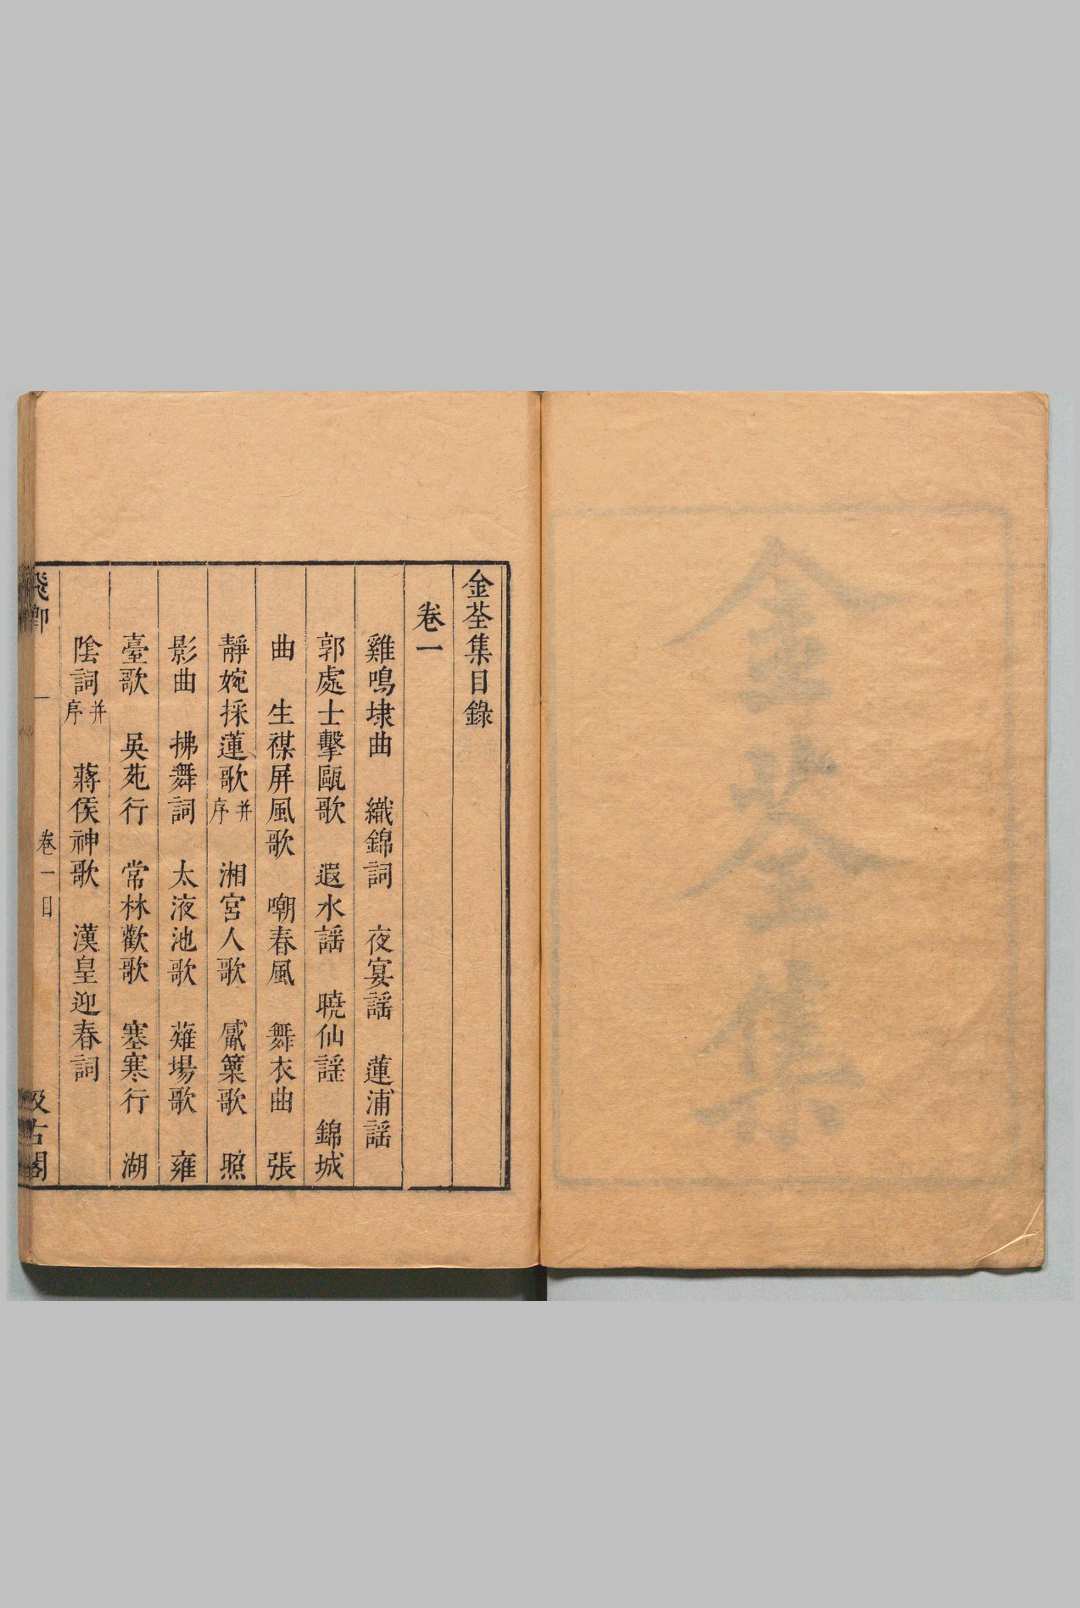 金荃集
金荃集目錄
卷一
雞鳴埭曲　織錦詞　夜宴謡　蓮浦謡
郭處士擊甌歌　遐水謡　曉仙謡　錦城
曲　生禖屏風歌　嘲春風　舞衣曲　張
靜婉採蓮歌并序　湘宮人歌　觱篥歌　照
影曲　拂舞詞　太液池歌　雉場歌　雍
臺歌　吳苑行　常林歡歌　塞寒行　湖
陰詞并序　蔣侯神歌　漢皇迎春詞
飛卿　一　卷一目　汲古閣